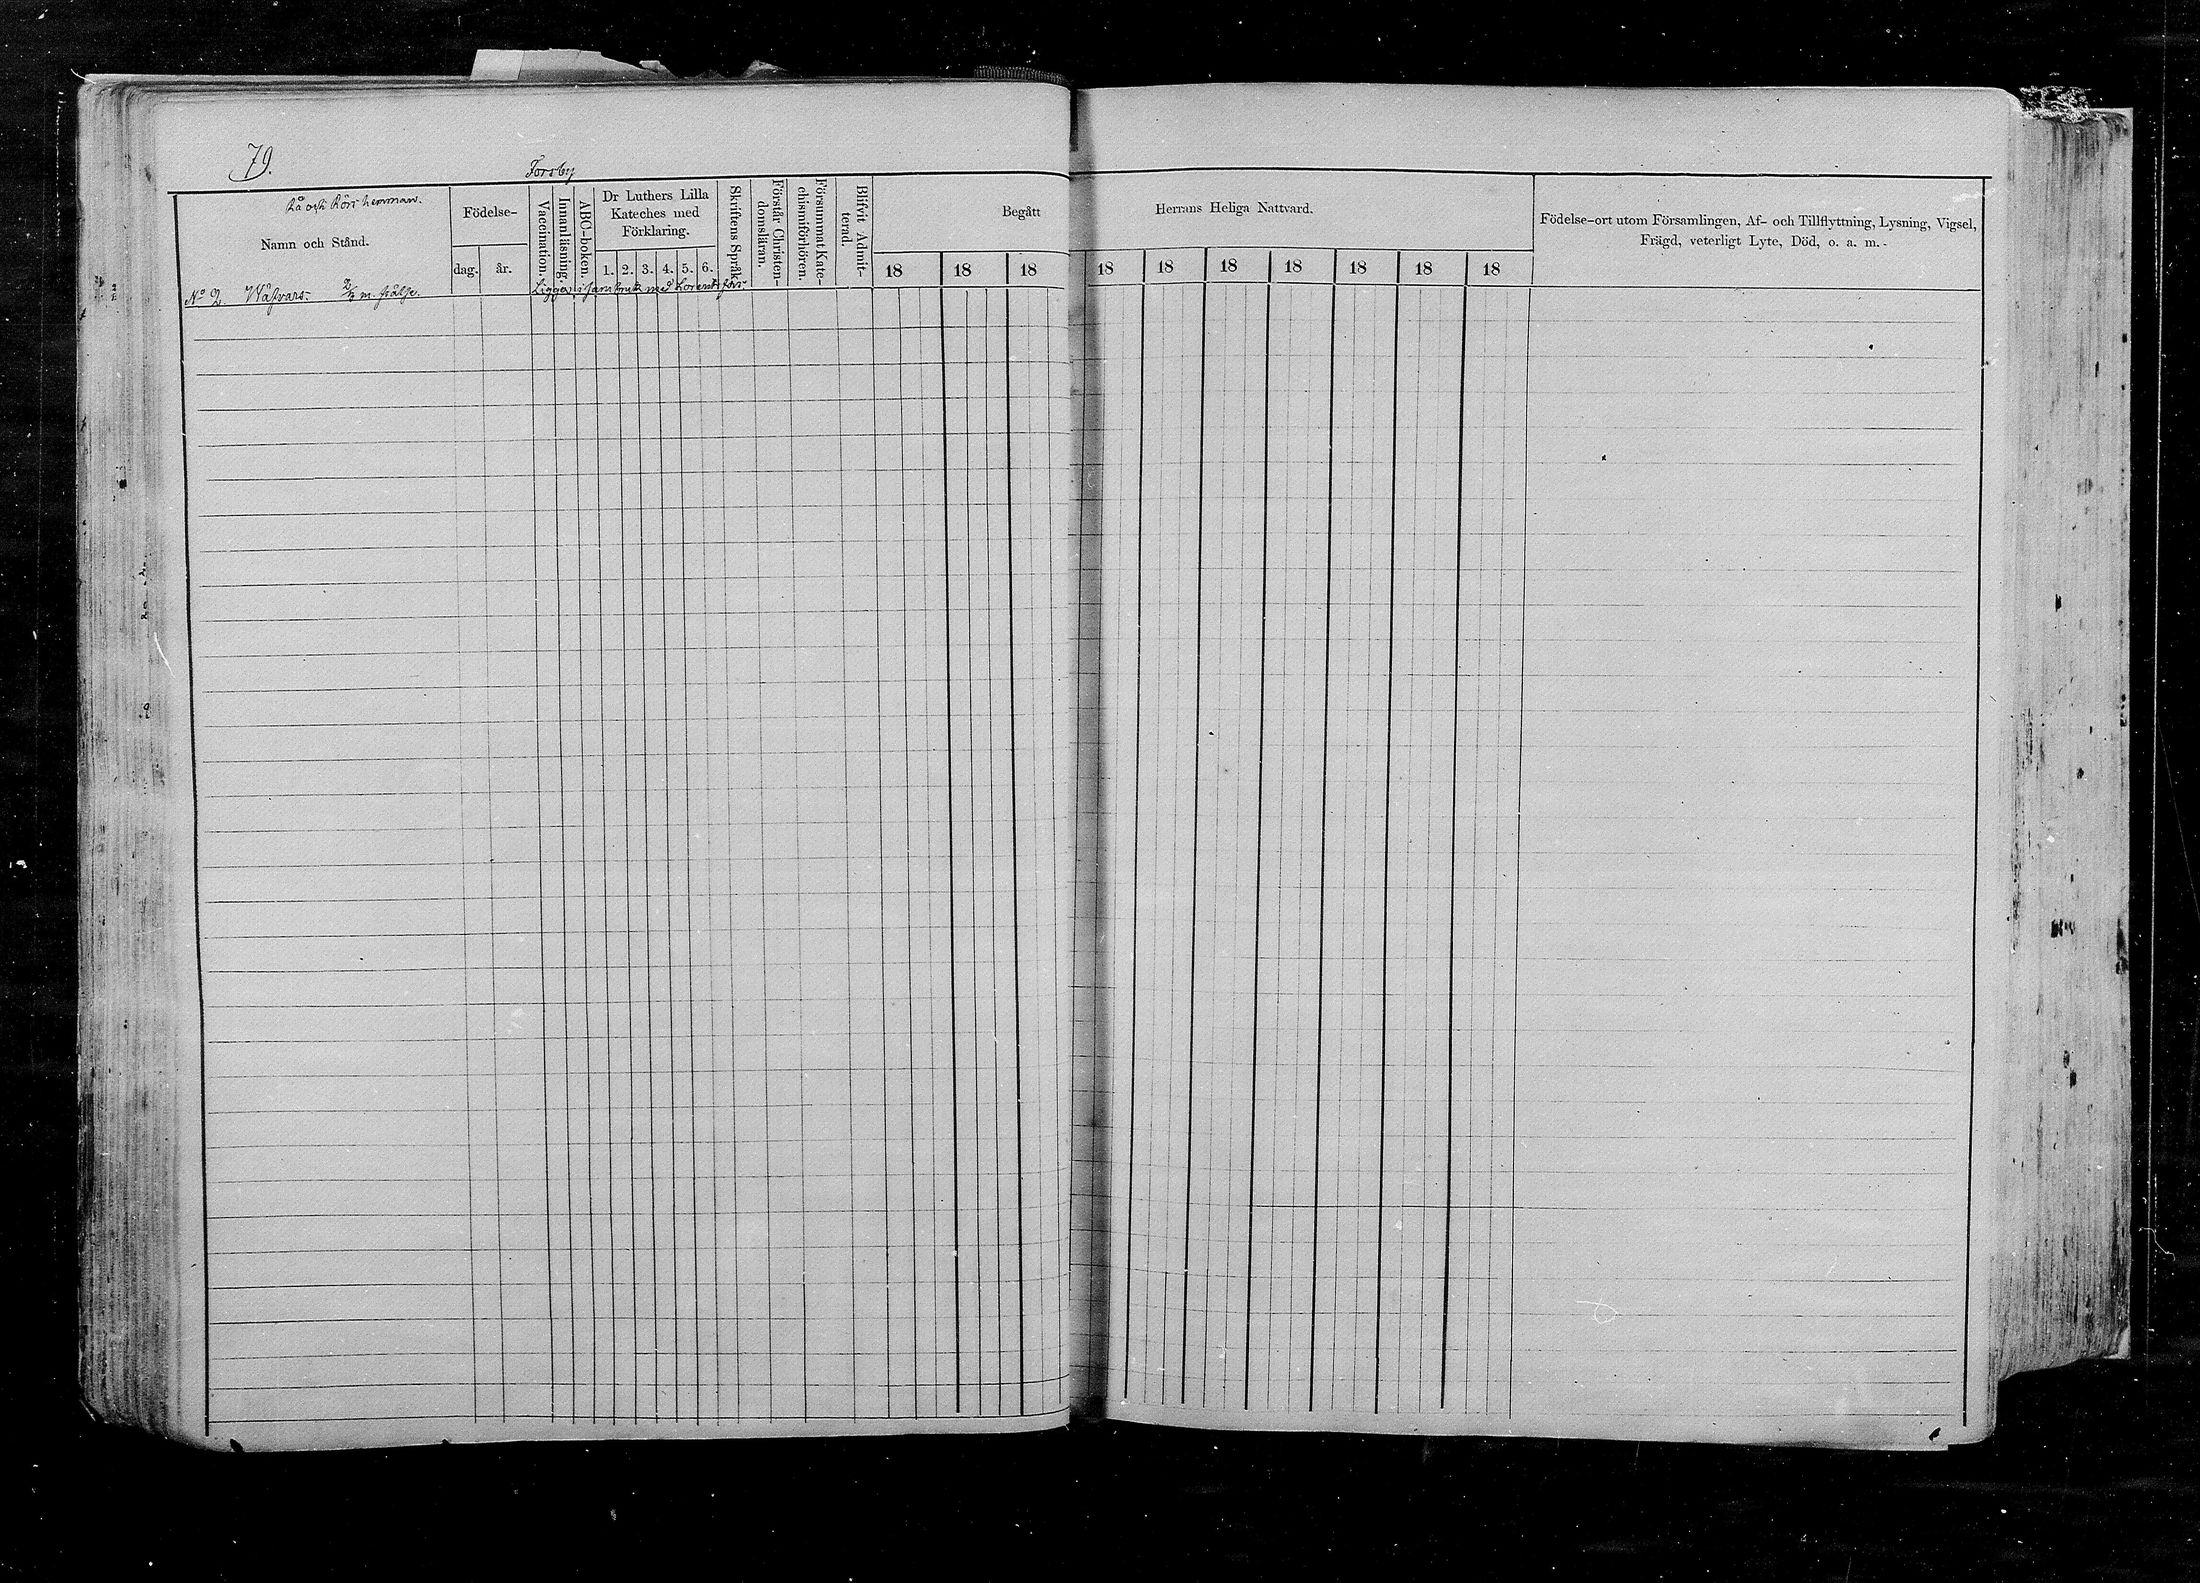 79.
Forsby
Rå och Rörs hemman.
Namn och Stånd.
Födelse-
dag. år.
Vaccination.
Innanläsning.
ABC-boken.
Dr Luthers Lilla
Kateches med
Förklaring.
1. 2. 3. 4. 5. 6.
Skriftens Språk.
Förstår Christen-
domsläran.
Försummat Kate-
chismiförhören.
Blifvit Admit-
terad.
Begått Herrans Heliga Nattvard.
18 18 18 18 18 18 18 18 18 18
Födelse-ort utom Församlingen, Af- och Tillflyttning, Lysning, Vigsel,
Frägd, veterligt Lyte, Död, o. a. m.
No 2. Wästvars m. frälse. Ligger i sambruk med